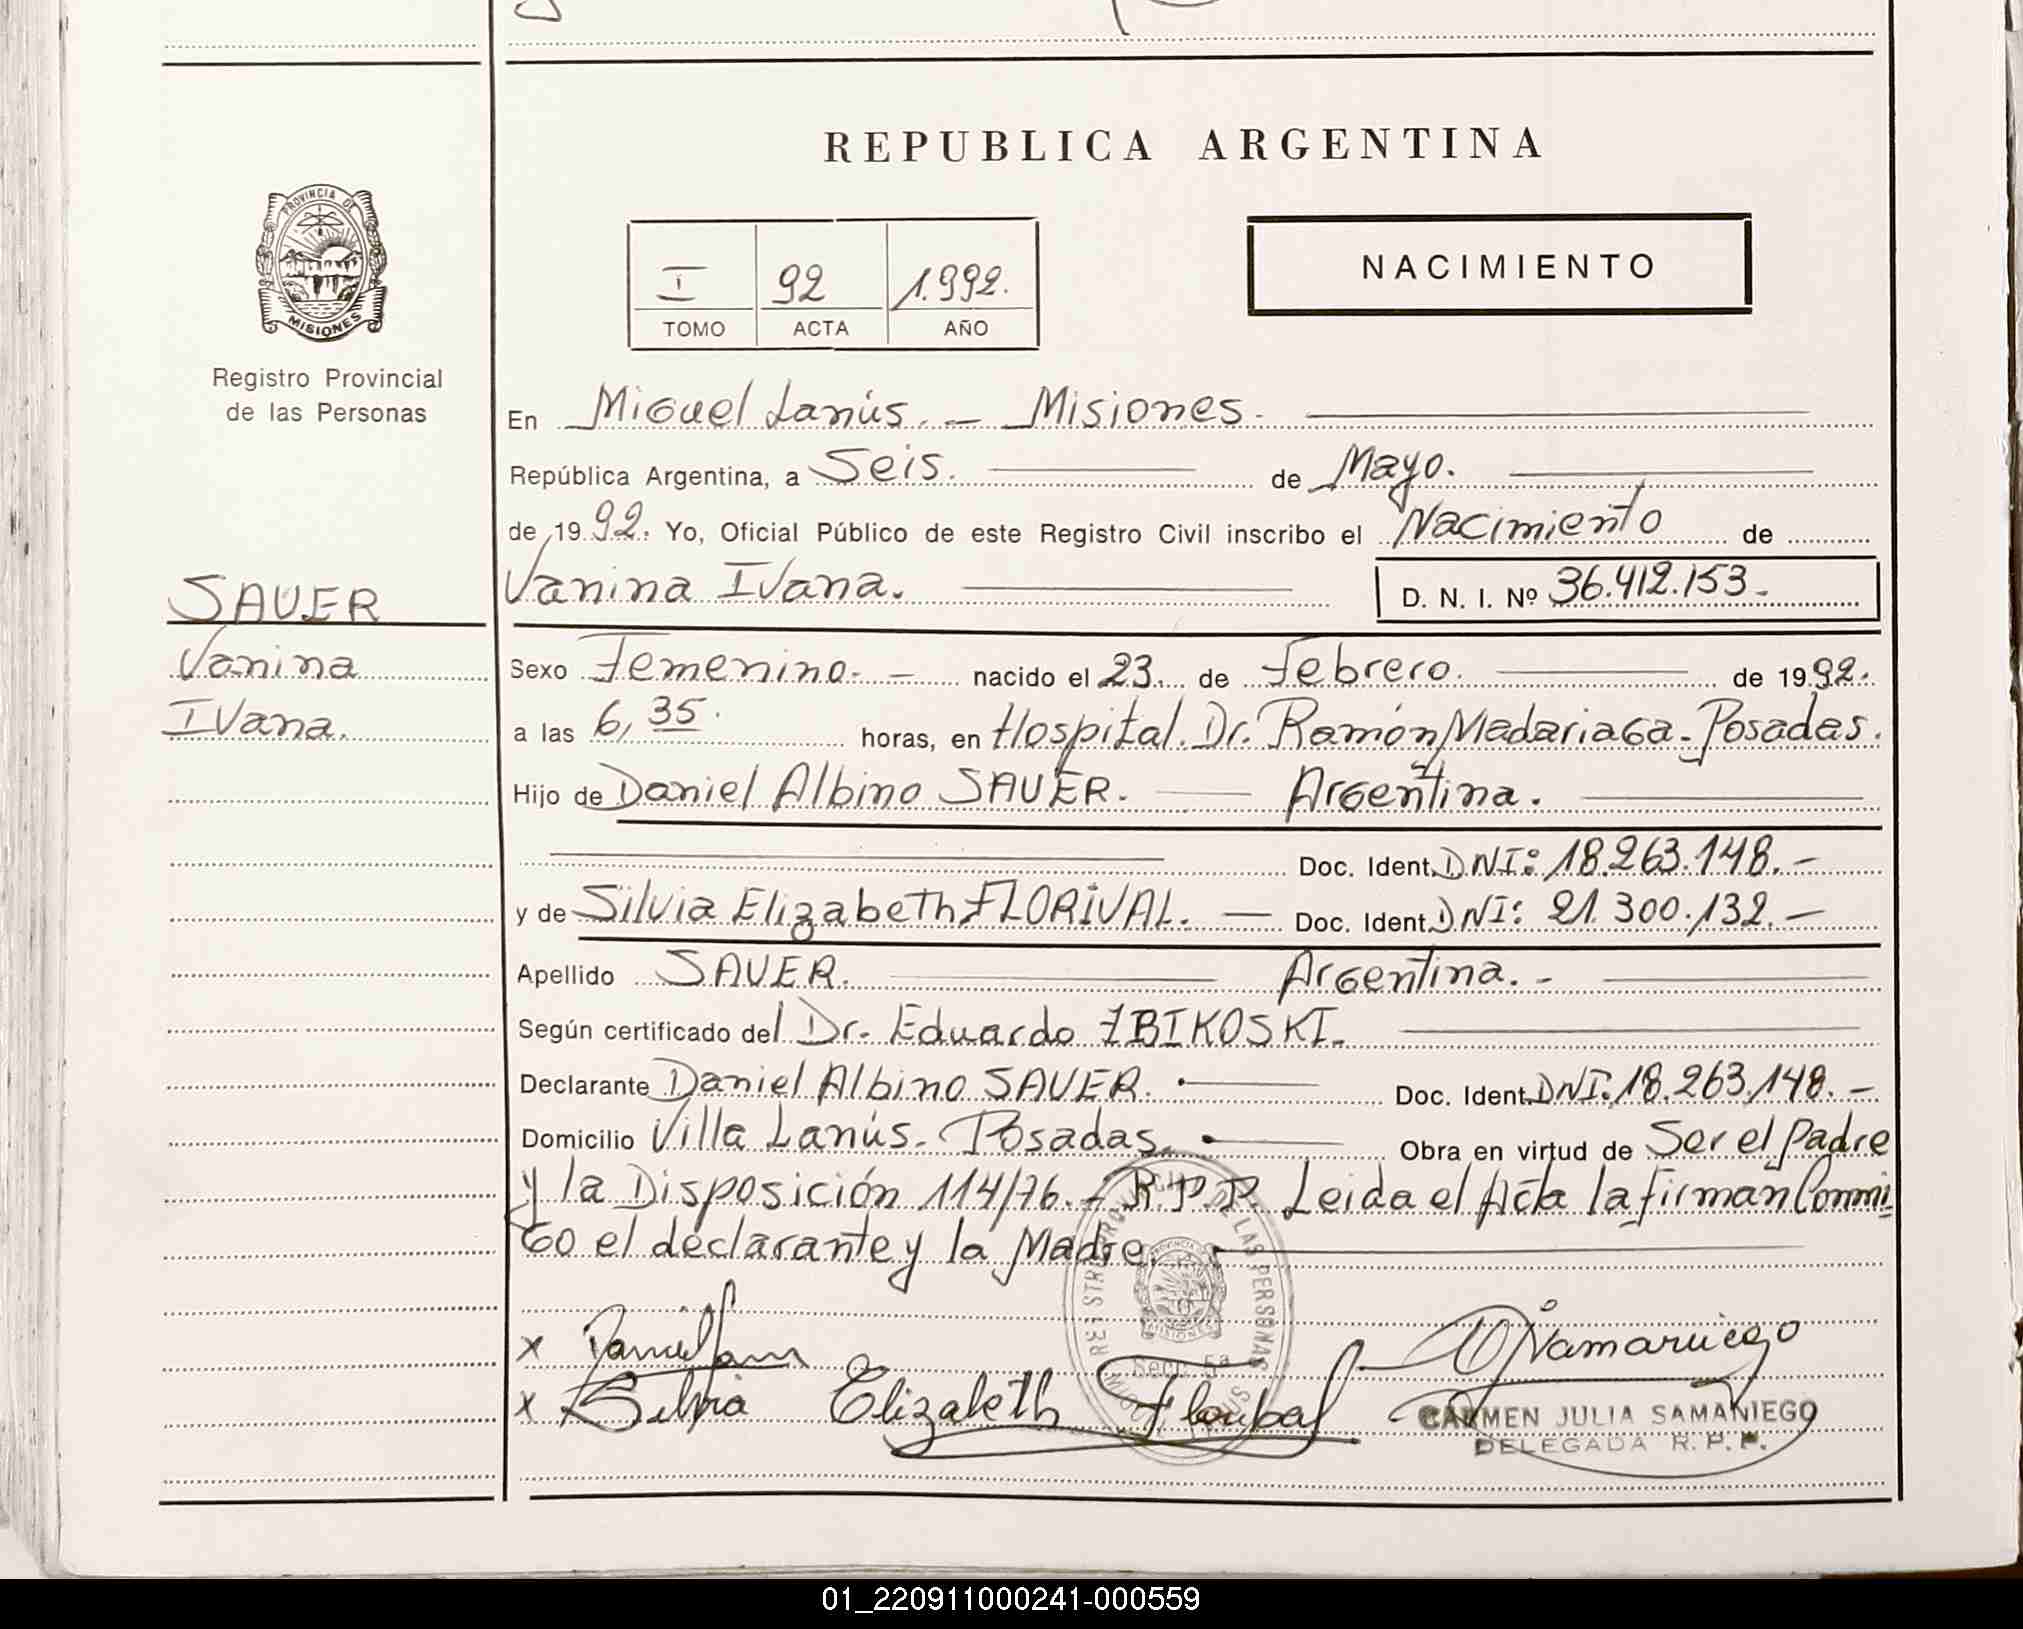 REPUBLICA ARGENTINA
PROVINCIA DE
MISIONES
Registro Provincial
de las Personas
I 92 1.992.
TOMO ACTA AÑO
NACIMIENTO
En Miguel Lanús. - Misiones.
República Argentina, a Seis. de Mayo.
de 1992. Yo, Oficial Público de este Registro Civil inscribo el Nacimiento de
Vanina Ivana. D. N. I. Nº 36.412.153.
SAUER
Vanina
Ivana.
Sexo Femenino. - nacido el 23. de Febrero. de 1992.
a las 6,35. horas, en Hospital. Dr. Ramón Madariaga - Posadas.
Hijo de Daniel Albino SAUER. Argentina.
Doc. Ident. DNI: 18.263.148. -
y de Silvia Elizabeth FLORIVAL. - Doc. Ident. DNI: 21.300.132. -
Apellido SAUER. Argentina. -
Según certificado del Dr. Eduardo ZBIKOSKI.
Declarante Daniel Albino SAUER. Doc. Ident. DNI. 18.263.148. -
Domicilio Villa Lanús. Posadas. Obra en virtud de Ser el padre
y la Disposición 114/76. - R.P.P. Leida el Acta la firman Conmi
go el declarante y la Madre.
x Daniel
x Silvia Elizabeth
CARMEN JULIA SAMANIEGO
DELEGADA R. P. P.
01_220911000241-000559